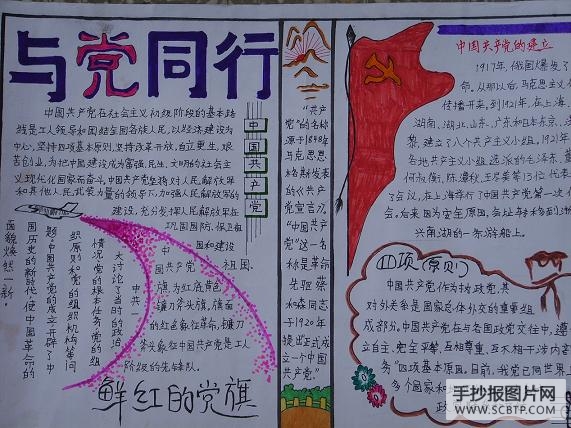 与党同行
中国共产党在社会主义初级阶段的基本路
线是工人领导和团结全国各族人民,以经济建设为
中心,坚持四项基本原则,坚持改革开放,自立更生,艰
苦创业,为把中国建设成为富强,民生,文明的社会主义
现代化国家而奋斗。中国共产党坚持对人民解放军
和其他人民武装力量的领导,加强人民解放军的
建设,充分发挥人民解放军在
巩固国防、保卫祖
国和建设
祖国
中国共产党
中共一
大讨论了当时的政治
情况党的根本任务党的组
织原则和党的组织机构等问
题。中国共产党的成立开辟了中
国历史的新时代,使中国革命的
面貌焕然一新。
中国共产党
旗,为红底黄色
镰刀斧头旗,旗面
的红色象征革命,镰刀
斧头象征中国共产党是工人
阶级的先锋队。
鲜红的党旗
"共产
党"的名称
源于1848年
马克思恩
格斯发表
的《共产
党宣言》。
"共产
党"这一名
称是革命
先驱蔡
和森同志
于1920年
提出正式成
立一个中国
共产党"
中国共产党的建立
1917年,俄国爆发了
命。从那以后,马克思主义
传播开来,到1921年,在上海、
湖南、湖北、山东、广东和日本东京、法
黎,建立了八个共产主义小组。1921年
各地共产主义小组,选派的毛泽东、董
何叔衡、陈潭秋、王尽美等13位代表
了会议,在上海举行了中国共产党第一次
会。后来因为安全原因,会址转移到浙
兴南湖的一条游船上。
四项原则
中国共产党作为执政党,其
对外关系是国家总体外交的重要组
成部分。中国共产党在与各国政党交往中,遵
立自主、完全平等、互相尊重、互不相干涉内容
务"四项基本原因。目前,我党已同世界上
多个国家和
政
手抄报图片网
WWW.SCBTP.COM